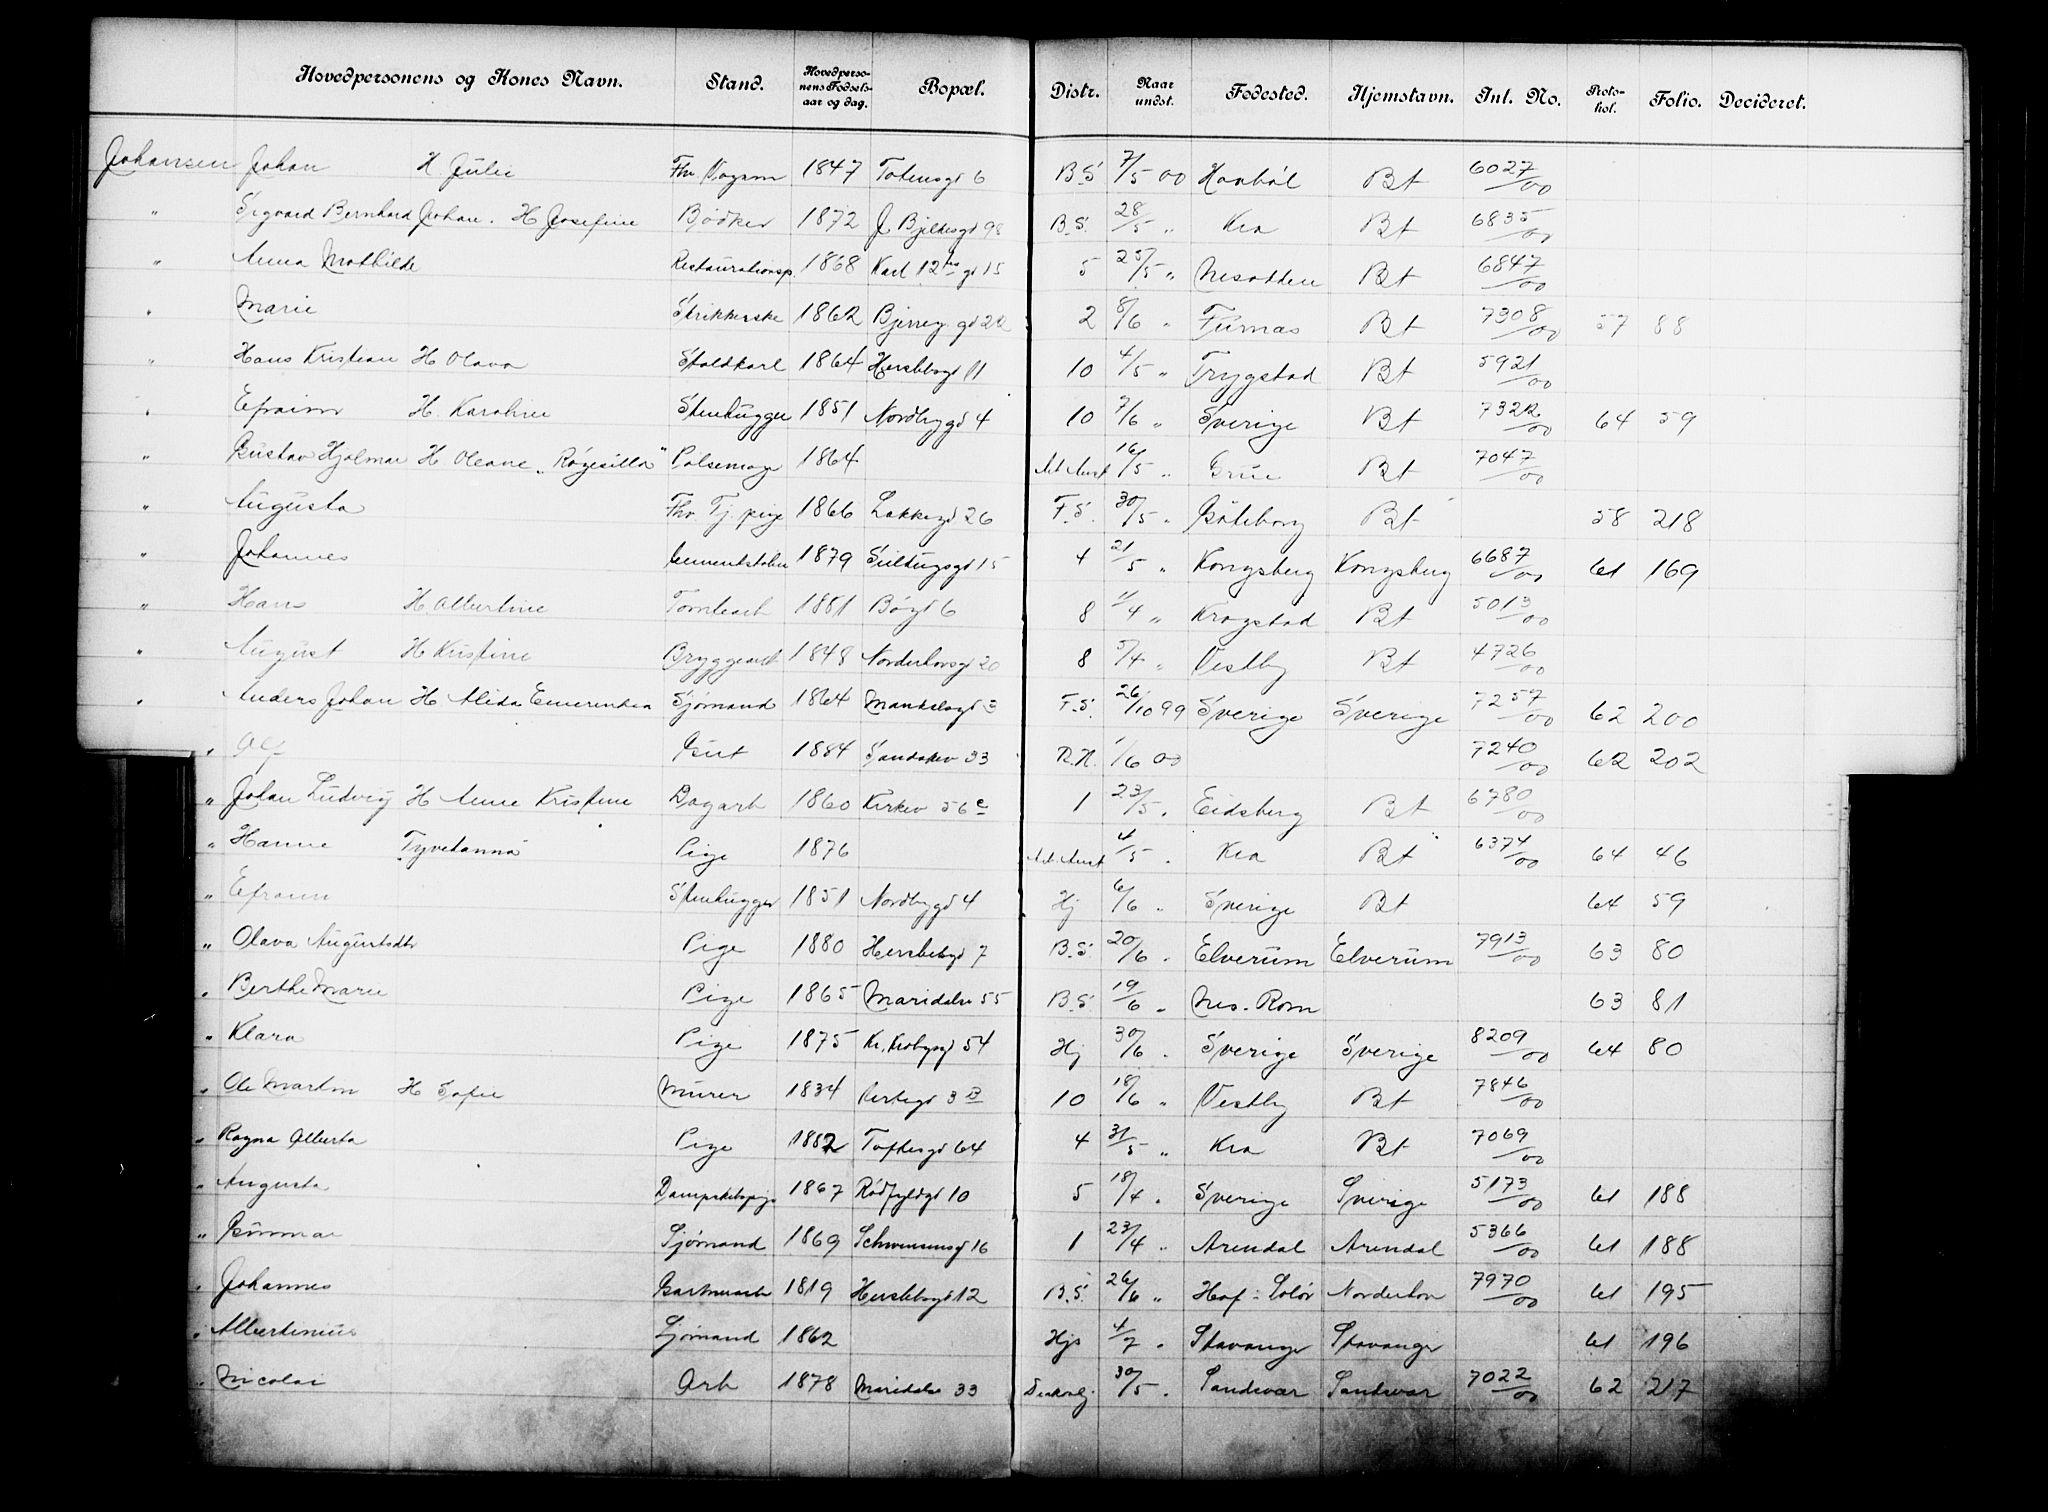 Hovedpersonens og Kones Navn. Stand. Hovedperso-nens Fødsels-aar og dag. Bopæl. Distr. Naar undst. Fødested. Hjemstavn. Inl. No. Proto-kol. Folio. Decideret.
Johansen Johan H Julie Fhv Vognm 1847 Totensgd 6 B.S. 7/5 00 Haabøl Bt 6027/00
" Sigvard Bernhard Johan. H Josefine Bødker 1872 J Bjelkesgd 98 B.S. 28/5 " Kra Bt 6835/00
" Anna Mathilde Restaurationsp. 1868 Karl 12tes gd 15 5 25/5 " Nesodden Bt 6847/00
" Marie Strikkerske 1862 Bjerreg. gd 22 2 8/6 " Furnæs Bt 7308/00 57 88
" Hans Kristian H Olava Staldkarl 1864 Herslebsgd 11 10 4/5 " Trygstad Bt 5921/00
" Efraim H. Karoline Stenhugger 1851 Nordbygd 4 10 7/6 " Sverige Bt 7322/00 64 59
" Gustav Hjalmar H Oleane „Røgesilla" Pølsemager 1864 Arb Anst 16/5 " Grue Bt 7047/00
" Augusta Fhv Tj. pige 1866 Lakkegd 26 F.S. 30/5 " Gøteborg Bt 58 218
" Johannes Cementstøber 1879 Siebkegd 15 4 21/5 " Kongsberg Kongsberg 6687/00 61 169
" Hans H Albertine Tomtearb 1881 Bøgd 6 8 11/4 " Krogstad Bt 5013/00
" August H Kristine Bryggearb 1848 Norderhovsgd 20 8 5/4 " Vestby Bt 4726/00
" Anders Johan H Alida Emerentia Sjømand 1864 Mandalsgd 3 F.S. 26/10 99 Sverige Sverige 7257/00 62 200
" Alf Gut 1884 Sandakev 33 R.H. 1/6 00 7240/00 62 202
" Johan Ludvig H Anne Kristine Dagarb 1860 Kirkev 56 c 1 23/5 " Eidsberg Bt 6780/00
" Hanne Tyvetanna Pige 1876 Arb. Anst 4/5 " Kra Bt 6374/00 64 46
" Efraim Stenhugger 1851 Nordbygd 4 Hj 6/6 " Sverige Bt 64 59
" Olava Augustsdtr Pige 1880 Herslebsgd 7 B.S. 20/6 " Elverum Elverum 7913/00 63 80
" Berthe Marie Pige 1865 Maridalsv 55 B.S. 19/6 " Nes. Rom 63 81
" Klara Pige 1875 Kr. Krohgsgd 54 Hj 30/6 " Sverige Sverige 8209/00 64 80
" Ole Martin H Sofie Murer 1834 Vertsgd 3 B 10 18/6 " Vestby Bt 7846/00
" Ragna Alberta Pige 1882 Toftesgd 64 4 31/5 " Kra Bt 7069/00
" Augusta Dampskibspige 1867 Rødfyldgd 10 5 18/4 " Sverige Sverige 5173/00 61 188
" Gunnar Sjømand 1869 Schwensensgd 16 1 23/4 " Arendal Arendal 5366/00 61 188
" Johannes Gartnerarb 1819 Herslebsgd 12 B.S. 26/6 " Hof - Solør Norderhov 7970/00 61 195
" Albertinius Sjømand 1862 Hjs 4/7 " Stavanger Stavanger 61 196
" Nicolai Arb 1878 Maridalsv 33 Diakonhj. 30/5 " Sandsvær Sandsvær 7022/00 62 217